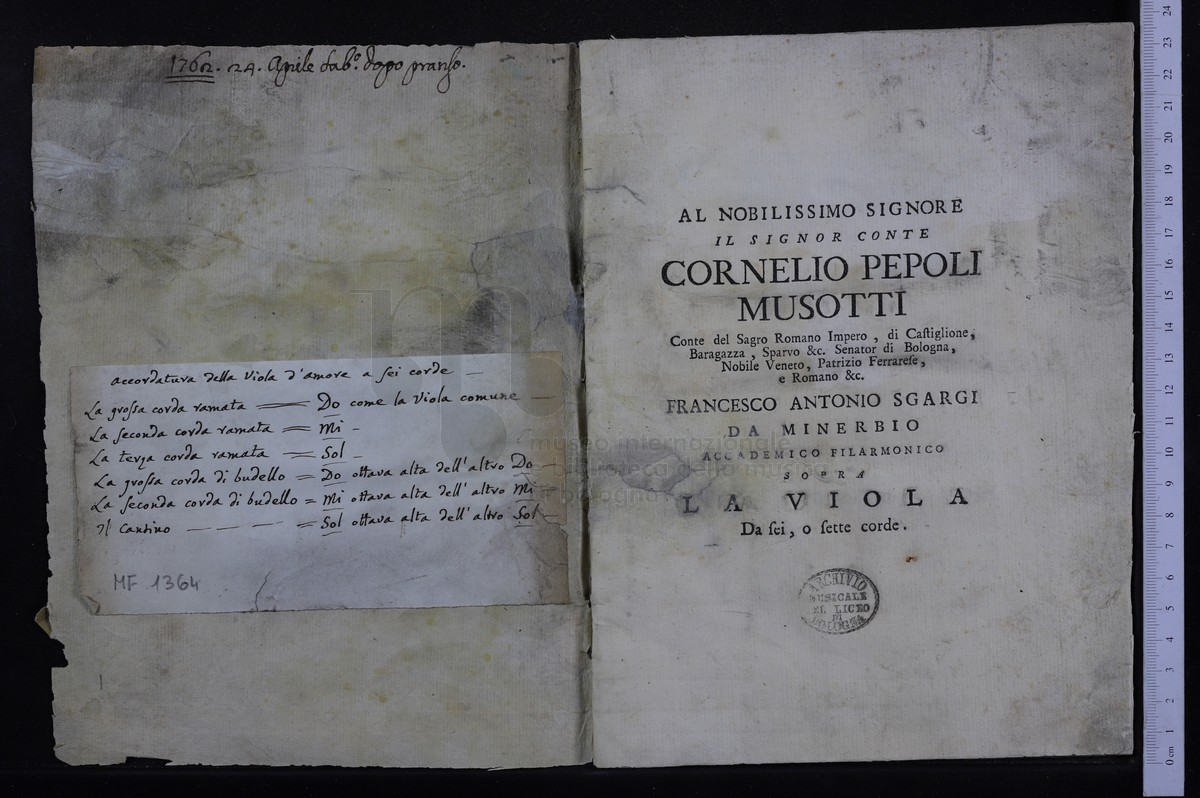 1762. 24. Aprile sab.º dopo pranso.
accordatura della Viola d'amore a sei corde —
La grossa corda ramata == Do come la Viola comune —
La seconda corda ramata == Mi -
La terza corda ramata == Sol -
La grossa corda di budello = Do ottava alta dell'altro Do —
La seconda corda di budello = Mi ottava alta dell'altro Mi —
Il Cantino — — — — = Sol ottava alta dell'altro Sol —
MF 1364
AL NOBILISSIMO SIGNORE
IL SIGNOR CONTE
CORNELIO PEPOLI
MUSOTTI
Conte del Sagro Romano Impero, di Caſtiglione,
Baragazza, Sparvo &c. Senator di Bologna,
Nobile Veneto, Patrizio Ferrareſe,
e Romano &c.
FRANCESCO ANTONIO SGARGI
DA MINERBIO
ACCADEMICO FILARMONICO
SOPRA
LA VIOLA
Da ſei, o ſette corde.
ARCHIVIO
MUSICALE
DEL LICEO
DI
BOLOGNA
museo internazionale
e biblioteca della musica
di bologna
0 cm 1 2 3 4 5 6 7 8 9 10 11 12 13 14 15 16 17 18 19 20 21 22 23 24